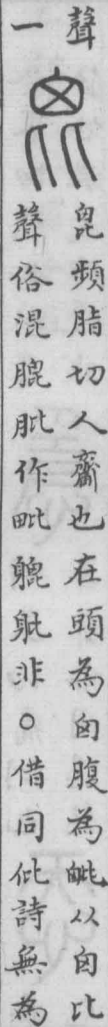 聲
一
毘頻脂切人齋也在頭為囟腹為毗从囟比
聲俗混膍肶作毗非。借同仳詩無為